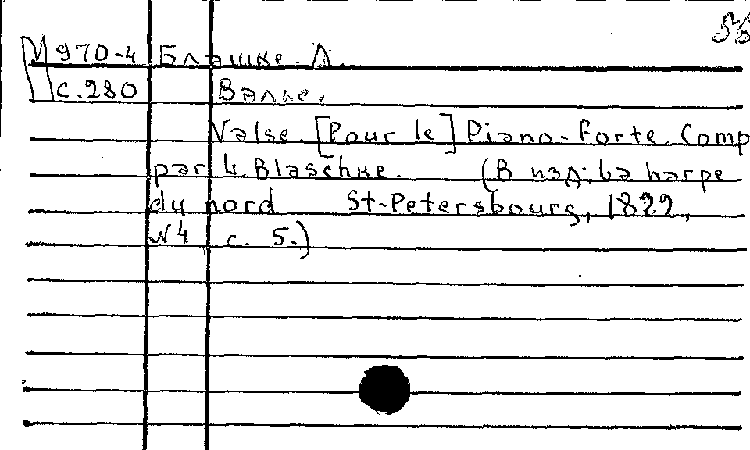 М 970-4 Блашке Л.
с. 280 Вальс.
Valse [Pour le] Piano-Forte Comp
par L. Blaschke. (В изд: La harpe
du nord St-Petersbourg, 1822,
№4 с. 5.)